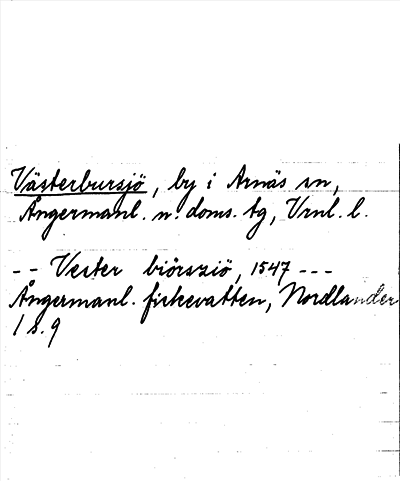 Västerbursjö, by i Arnäs sn,
Ångermanl. n. doms. tg, Vrnl. l.
-- Vester biörsziö, 1547 ---
Ångermanl. fiskevatten, Nordlander
1 s. 9